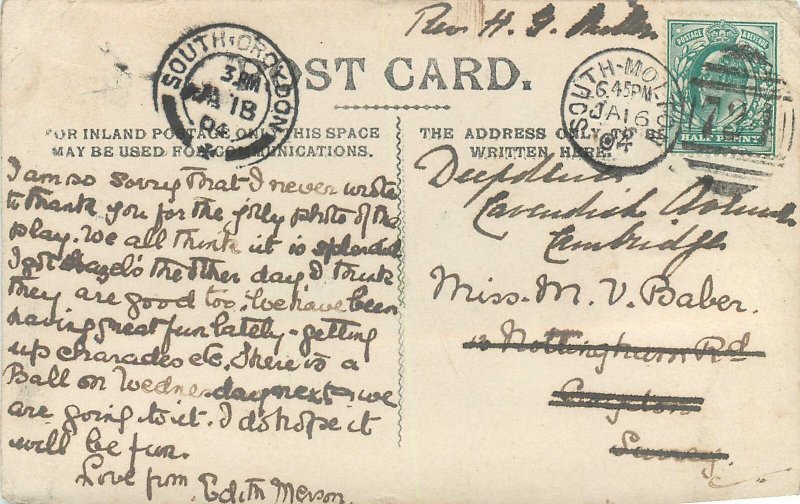 Rev. H. J.
SOUTH-CROYDON
3 PM
JA 18
04
POST CARD.
SOUTH-MOLTON
6.45 PM
JA 16
04
727
HALF PENNY
FOR INLAND POSTAGE ONLY THIS SPACE
MAY BE USED FOR COMMUNICATIONS.
THE ADDRESS ONLY TO BE
WRITTEN HERE.
I am so sorry that I never wrote
to thank you for the jolly photo of the
play. We all think it is splendid
I got Hazel's the other day, I think
they are good too. We have been
having great fun lately - getting
up charades etc. There is a
Ball on Wednesday next & we
are going to it. I do hope it
will be fun.
Love from Edith Merson.
Cavendish Avenue
Cambridge
Miss. M. V. Baber.
13 Nottingham Rd
Croydon
Surrey.